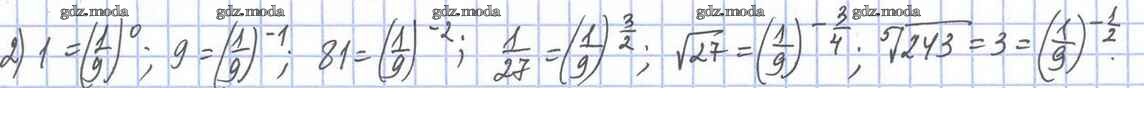 gdz.moda gdz.moda gdz.moda gdz.moda gdz.moda gdz.moda
2) 1 = (1/9)^0; 9 = (1/9)^-1; 81 = (1/9)^-2; 1/27 = (1/9)^3/2; √27 = (1/9)^-3/4; ⁵√243 = 3 = (1/9)^-1/2.